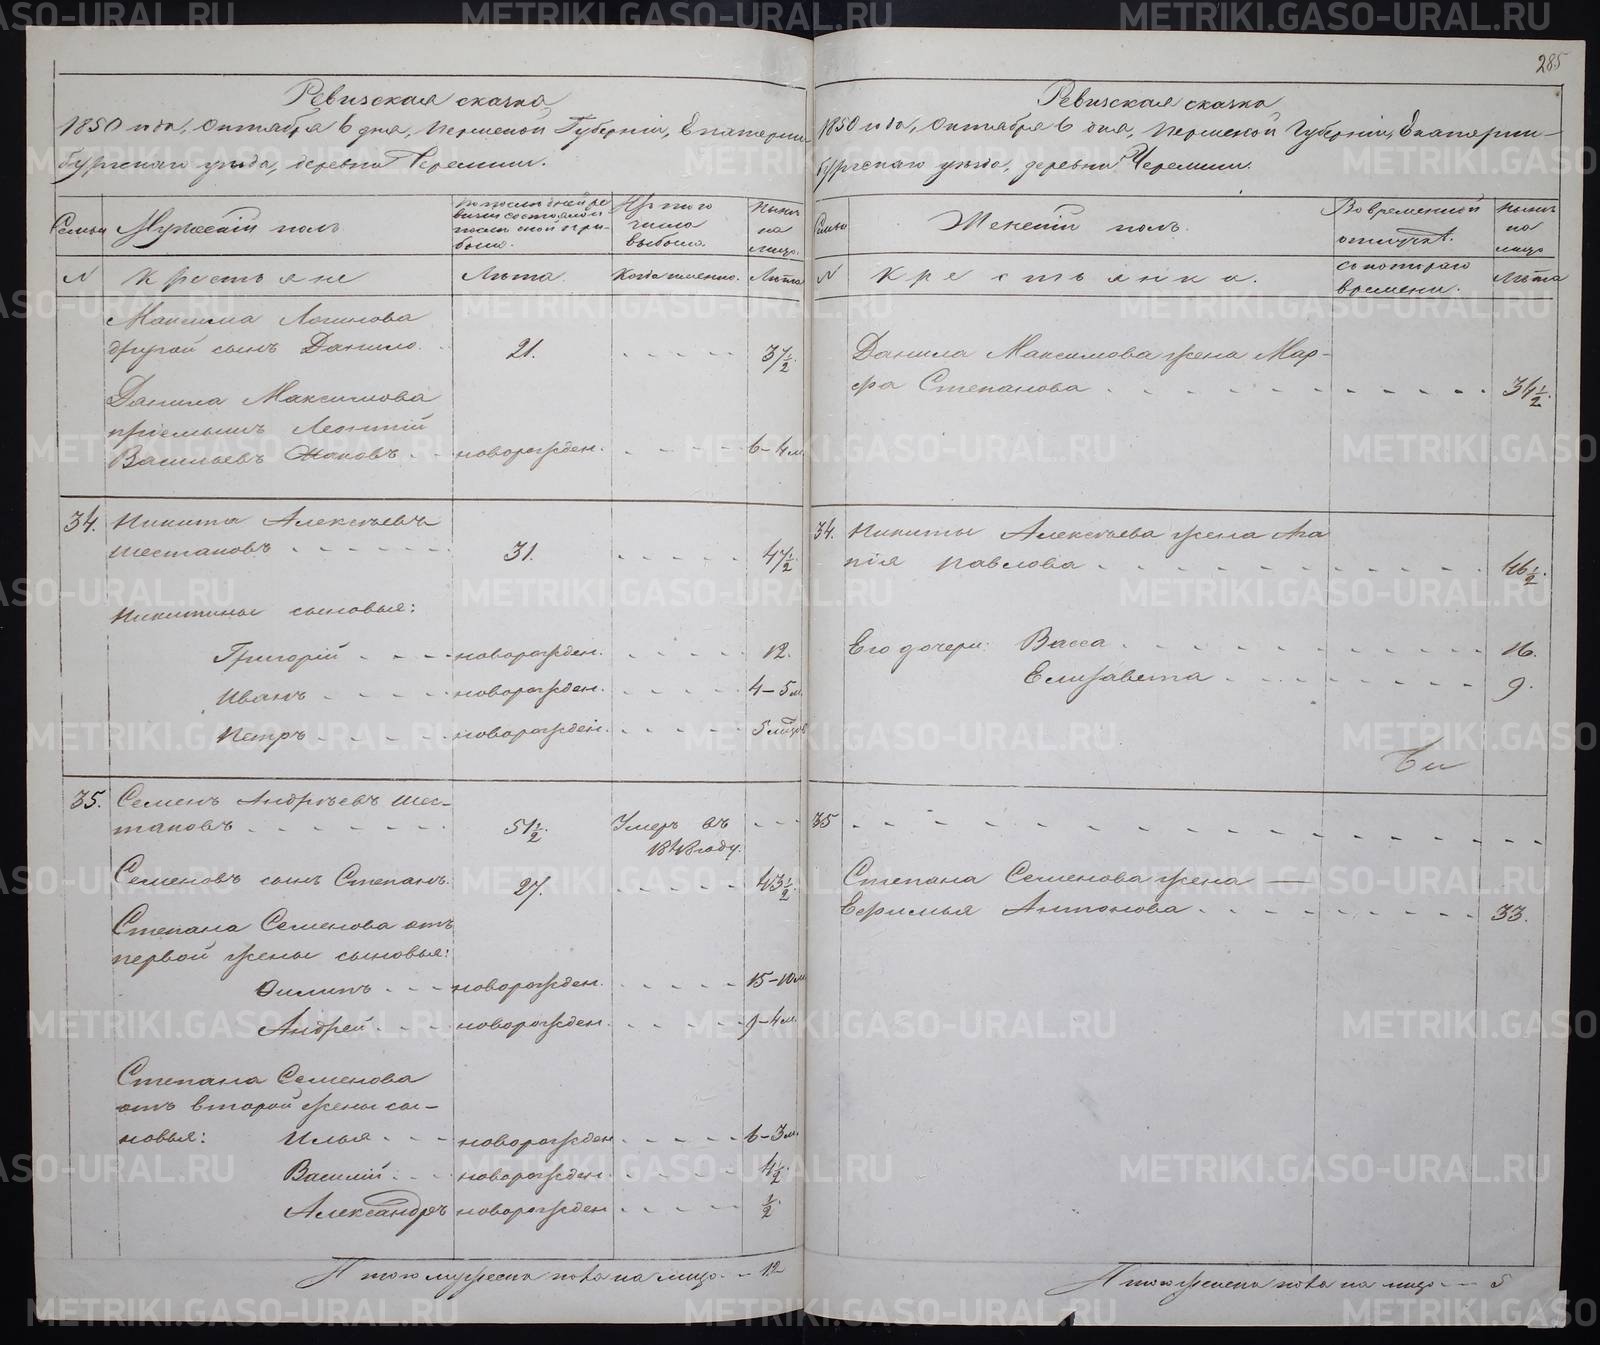 285
Ревизская сказка
1850 года, Октября 6 дня, Пермской Губерніи, Екатерин-
бургскаго уѣзда, деревни Черемши.
Семьи
Мужескій полъ
По послѣдней ре-
визіи состояло и
послѣ оной при-
было.
Изъ того
числа
выбыло.
Нынѣ
на
лицо.
N
Крестьяне
Лѣта.
Когда именно.
Лѣта
Максима Логинова
другой сынъ Данило. 21. 37½
Данила Максимова
пріемышъ Леонтій
Васильевъ новорожден. 6-4 м.
34. Никита Алексѣевъ
Шестаковъ 31. 47½
Никитины сыновья:
Григорій новорожден. 12.
Иванъ новорожден. 4-5 м.
Петръ новорожден. 5 мѣцовъ
35. Семенъ Андреевъ Шес-
таковъ 51½ Умеръ въ
1848 году.
Семеновъ сынъ Степанъ. 27. 43½
Степана Семенова отъ
первой жены сыновья:
Филипъ новорожден. 15-10 м
Андрей новорожден. 9-4 м.
Степана Семенова
отъ второй жены сы-
новья: Илья новорожден 6-3 м.
Василій новорожден. 4½
Александръ новорожден ½
Итого мужеска пола на лицо 12
Ревизская сказка
1850 года, Октября 6 дня, Пермской Губерніи, Екатерин-
бургскаго уѣзда, деревни Черемши.
Семьи
Женскій полъ.
Во временной
отлучкѣ.
Нынѣ
на
лицо
N
Крестьянка.
съ котораго
времени.
Лѣта
Данила Максимова жена Мар-
фа Степанова 34½.
34. Никиты Алексѣева жена Ага
пія Павлова 46½.
Его дочери: Васса 16.
Елизавета 9.
35
Степана Семенова жена
Ефимья Антонова 33.
Итого женска пола на лицо 5
METRIKI.GASO-URAL.RU